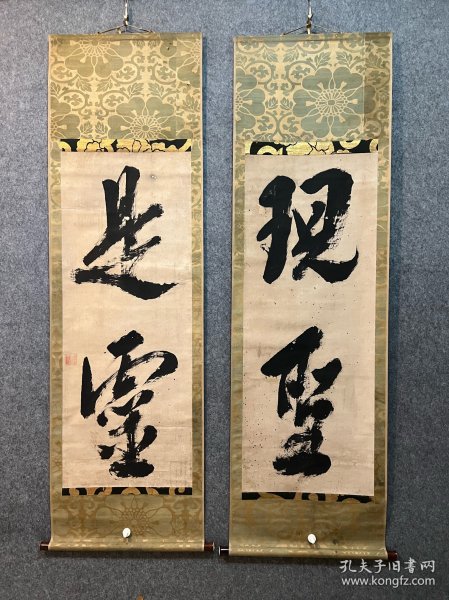 現聖
是靈
孔夫子旧书网
www.kongfz.com